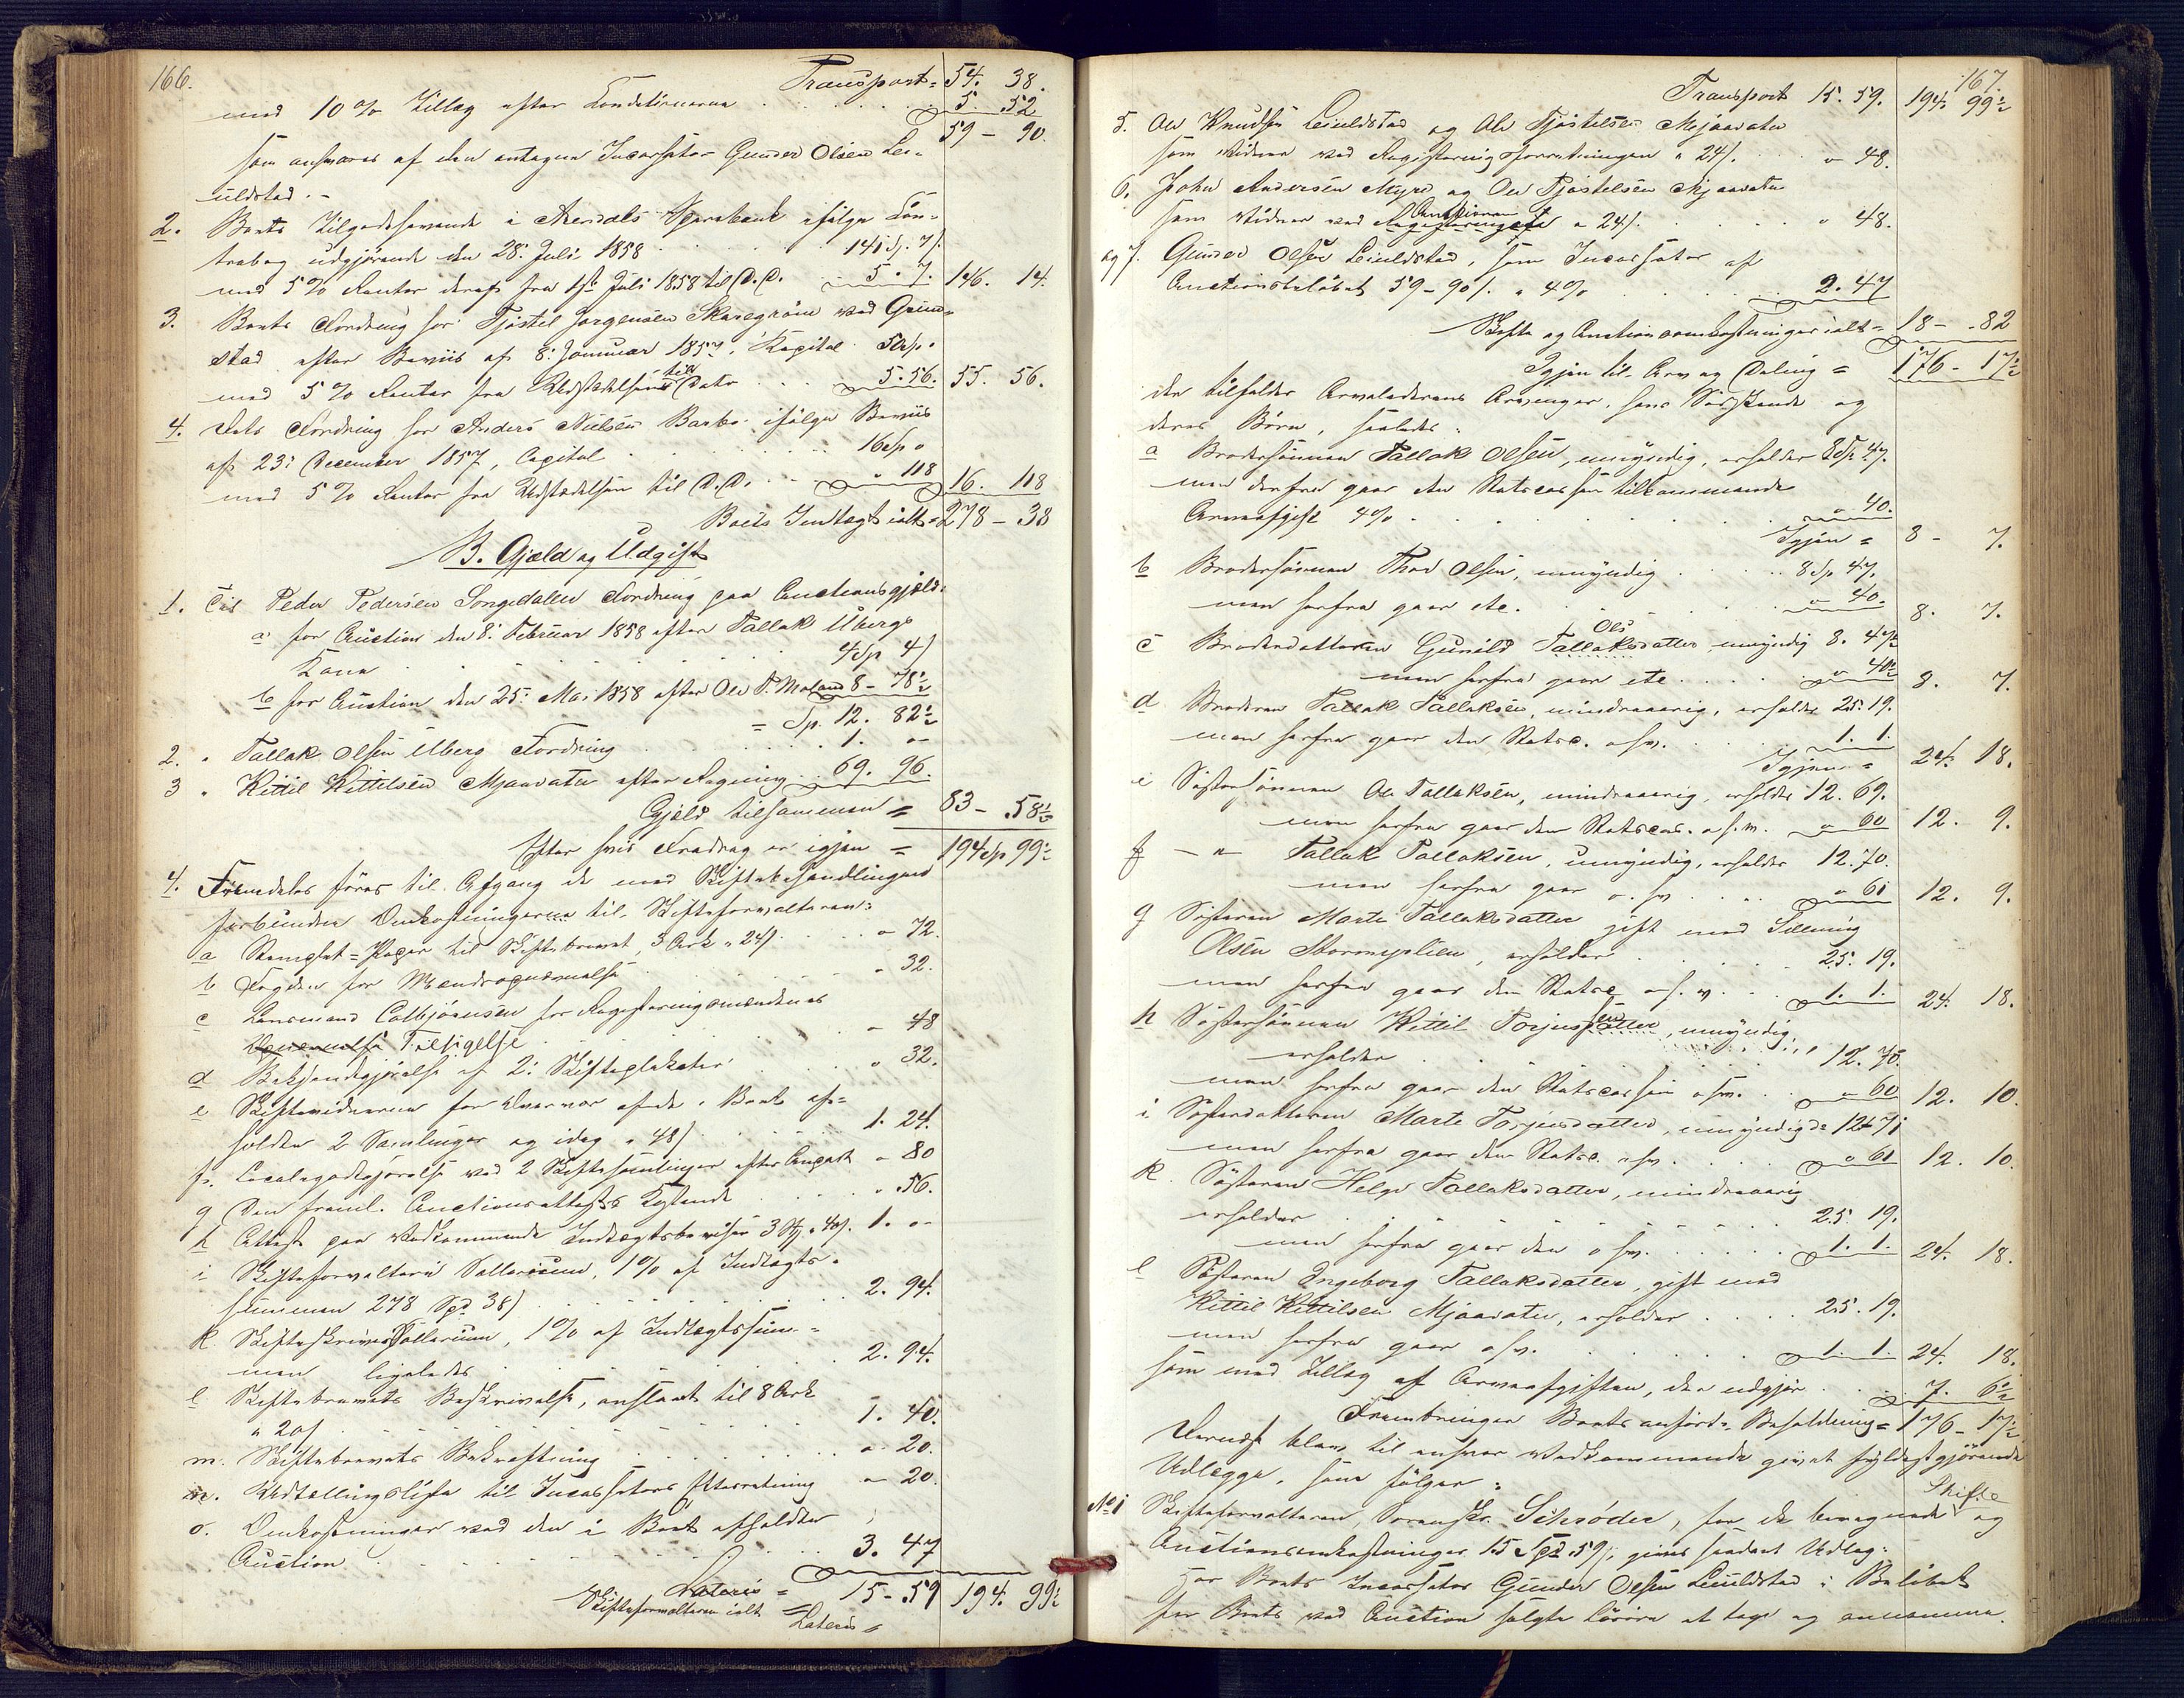 166.
Transport = 54. 38.
med 10 % Tillæg efter Conditionerne . . . 5. 52
59 - 90.
som ansvares af den antagne Incassator Gunder Olsen Lei-
uldstad. -
2. Boets Tilgodehavende i Arendals Sparebank ifølge Con-
trabog udgjørende den 28. Juli 1858 . . . 141 Sp. 7 s.
med 5 % Renter deraf fra 1ste Juli 1858 til D. D. . . . 5. 7. 146. 14.
3. Boets Fordring hos Tjøstel Jørgensen Skaregrøm ved Grim-
stad efter Beviis af 8. Januar 1857, Kapital 50 Sp. "
med 5 % Renter fra Udstedelsen til Dato . . . 5. 56. 55. 56.
4. Dets Fordring hos Anders Nielsen Barbo ifølge Beviis
af 23. December 1857, Capital . . . 16 Sp "
med 5 % Renter fra Udstædelsen til D. D. . . . " 108 16. 108
Boets Indtægt ialt = 278 - 38
B. Gjæld og Udgift
1. Til Peder Pedersen Songedalen Fordring paa Auctionsgjæld:
a for Auction den 8. Februar 1858 efter Tallak Ubergs
Kone . . . 4 Sp 4 s
b for Auction den 25. Mai 1858 efter Ole T. Moland 8 - 78½
= Sp. 12. 82½
2. " Tallak Olsen Uberg Fordring . . . 1. "-
3 " Kittil Kittilsen Mjaavatn efter Regning . . 69. 96.
Gjæld tilsammen = 83 - 58½
Efter hvis Fradrag er igjen = 194 Sp 99½
4. Fremdeles føres til Afgang de med Skiftebehandlingen
forbundne Omkostningerne til Skifteforvalteren:
a Stemplet = Papir til Skiftebrevet, 3 Ark a 24 s . . . " 72.
b Fogden for Mændsopnævnelse . . . " 32.
c Lensmand Colbjørnsen for Registeringsmændenes
Opnævnelse Tilsigelse . . . " 48
d Bekjendtgjørelse af 2. Skifteplakater . . . " 32.
e Skiftevidnerne for Nærvær ved de i Boet af-
holdte 2 Samlinger og idag a 48 s . . . 1. 24.
f. Localegodtgjørelse ved 2 Skiftesamlinger efter Anpart " 80
g Den freml. Auctionsattests Kostende . . . " 56.
h Attest paa Vedkommende Indtægtsbeviser 3 St. a 40 s. 1. "-
i Skifteforvalterens Sallarium, 1 % af Indtægts-
summen 278 Spd 38 s . . . 2. 94.
k. Skifteskriver Sallarium, 1 % af Indtægtssum-
men ligeledes . . . 2. 94.
l Skiftebrevets Beskrivelse, anslaaet til 8 Ark
a 20 s . . . 1. 40.
m. Skiftebrevets Bekræftning . . . " 20.
n. Udtællingsliste til Incassators Efterretning " 20.
o. Omkostninger ved den i Boet afholdte
Auction . . . 3. 47
Lateris =
Skifteforvalteren ialt = 15 - 59 194. 99½
Lateris =
167.
Transport 15. 59. 194. 99½
5. Ole Knudsen Leiuldstad og Ole Tjøstelsen Mjaavatn
som Vidner ved Registeringsforretningen a 24 s. . . . " 48.
6. John Andersen Myre og Ole Tjøstelsen Mjaavatn
som Vidner ved Registeringen Auctionen a 24 s. . . . " 48.
og 7. Gunder Olsen Leiuldstad, som Incassator af
Auctionsbeløbet 59 - 90 s. a 4 % . . . 2. 47
Skifte og Auctionsomkostninger ialt = 18 - 82
Igjen til Arv og Deling = 176 - 17½
der tilfalder Arveladerens Arvinger, hans Sødskende og
deres Børn, saaledes:
a Brodersønnen Tallak Olsen, umyndig, erholder 8 Sp. 47.
men derfra gaar den Statscassen tilkommende
Arveafgift 4 % . . . " 40.
Igjen = 8 - 7.
b Brodersønnen Thor Olsen, umyndig . . . 8 Sp 47.
men herfra gaar etc. . . . " 40. 8. 7.
c Broderdatteren Gunild Tallaksdatter Ols umyndig 8. 47½
men herfra gaar etc . . . " 40½ 8. 7.
d Broderen Tallak Tallaksen, mindreaarig, erholder 25. 19.
men herfra gaar den Statsc. o.s.v. . . . 1. 1.
Igjen = 24. 18.
e Søstersønnen Ole Tallaksen, mindreaarig, erholder 12. 69.
men herfra gaar den Statscas. o.s.v. " 60 12. 9.
f - " - Tallak Tallaksen, umyndig, erholder 12. 70.
men herfra gaar o.s.v. . . . " 61 12. 9.
g Søsteren Marte Tallaksdatter gift med
Olsen, erholder . . . 25. 19.
men herfra gaar den Statsc o.s.v. . . . 1. 1. 24. 18.
h Søstersønnen Kittil Torjusdatter sen, umyndig,
erholder . . . 12. 70.
men herfra gaar den Statscassen o.s.v. . . " 60 12. 10.
i Søsterdatteren Marte Torjusdatter, umyndig do 12. 71
men herfra gaar den Statsc. o.s.v. . . . " 61 12. 10.
k. Søsteren Helge Tallaksdatter, mindreaarig
erholder . . . 25. 19.
men herfra gaar den o.s.v. . . . 1. 1. 24. 18.
l Søsteren Ingeborg Tallaksdatter, gift med
Kittil Kittilsen Mjaavatn, erholder . . . 25. 19.
men herfra gaar o.s.v. . . . 1. 1. 24. 18.
som med Tillæg af Arveafgiften, der udgjør . . . 7. 6½
Frembringer Boets anførte Beholdning = 176 - 17½
Dernæst blev til enhver Vedkommende givet fyldestgjørende
Udlægge, som følger:
No 1 Skifteforvalteren, Sorenskr. Schrøder, for de beregnede Skifte og
Auctionsomkostninger 15 Spd 59 s, gives saadant Udlæg:
Hos Boets Incassator Gunder Olsen Leiuldstad i Beløbet
for Boets ved Auction solgte Løsøre at tage og annamme.